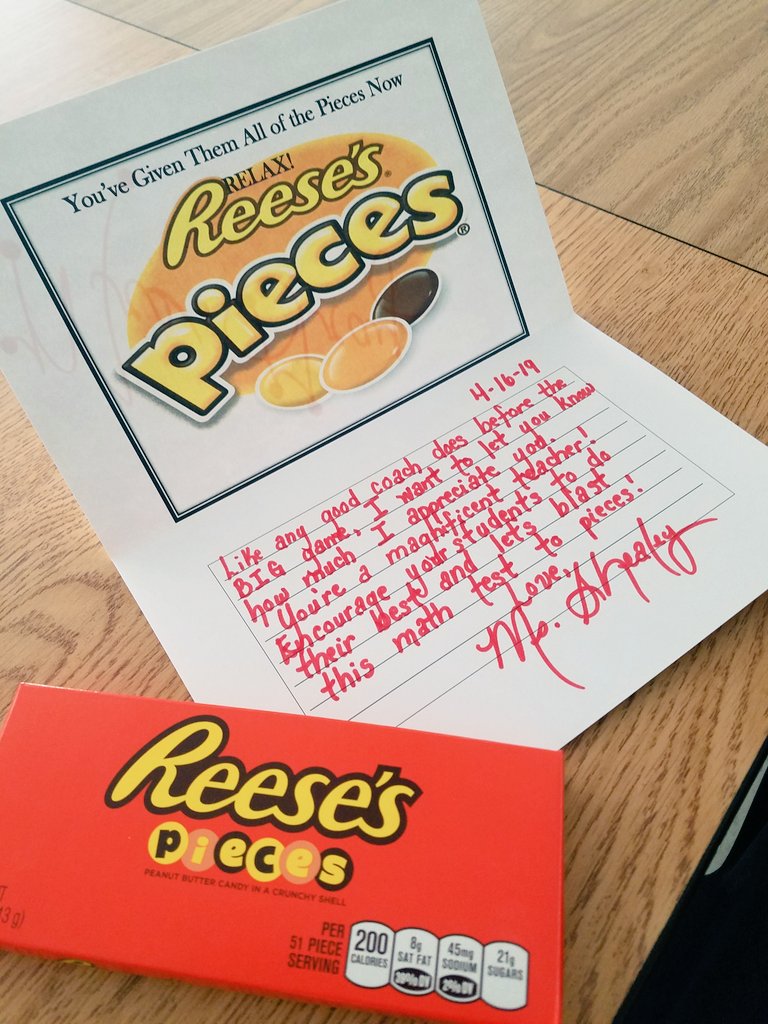 You've Given Them All of the Pieces Now
RELAX!
Reese's®
Pieces®
4-16-19
Like any good coach does before the
BIG game, I want to let you know
how much I appreciate you.
You're a magnificent teacher!
Encourage your students to do
their best and let's blast
this math test to pieces!
Love,
Ms. Shealey
Reese's
pieces
PEANUT BUTTER CANDY IN A CRUNCHY SHELL
PER
51 PIECE
SERVING
200
CALORIES
8g
SAT FAT
45mg
SODIUM
2% DV
21g
SUGARS